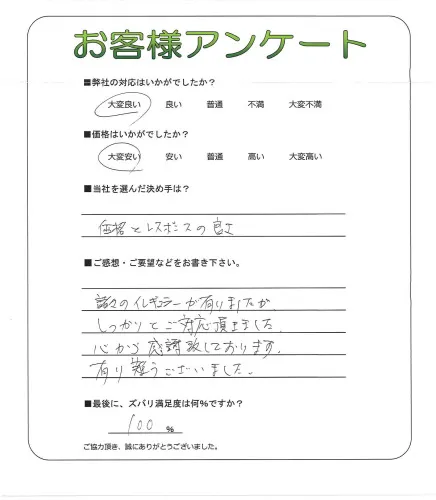 お客様アンケート
■弊社の対応はいかがでしたか？
大変良い 良い 普通 不満 大変不満
■価格はいかがでしたか？
大変安い 安い 普通 高い 大変高い
■当社を選んだ決め手は？
価格とレスポンスの良さ
■ご感想・ご要望などをお書き下さい。
諸々のイレギュラーが有りましたが、
しっかりとご対応頂きました。
心から感謝致しております。
有り難うございました。
■最後に、ズバリ満足度は何%ですか？
100 %
ご協力頂き、誠にありがとうございました。